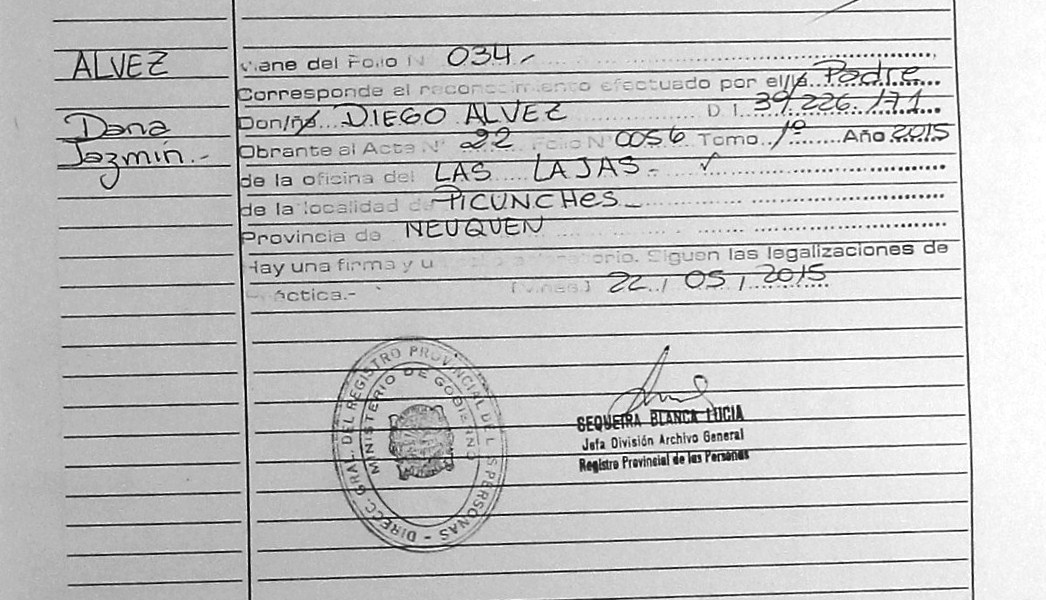 ALVEZ
Dana
Jazmín.-
Viane del Folio N 034.-
Corresponde al reconocimiento efectuado por el/la Padre
Don/ña DIEGO ALVEZ D I 39.226.171
Obrante al Acta N° 22 Folio N° 0056 Tomo 1º Año 2015
de la oficina del LAS LAJAS - ✓
de la localidad de PICUNCHES -
Provincia de NEUQUEN
Hay una firma y u Siguen las legalizaciones de
práctica.- 22 / 05 / 2015
DIRECC. GRAL. DEL REGISTRO PROVINCIAL DE LAS PERSONAS -
MINISTERIO DE GOBIERNO
SEQUEIRA BLANCA LUCIA
Jefa División Archivo General
Registro Provincial de las Personas